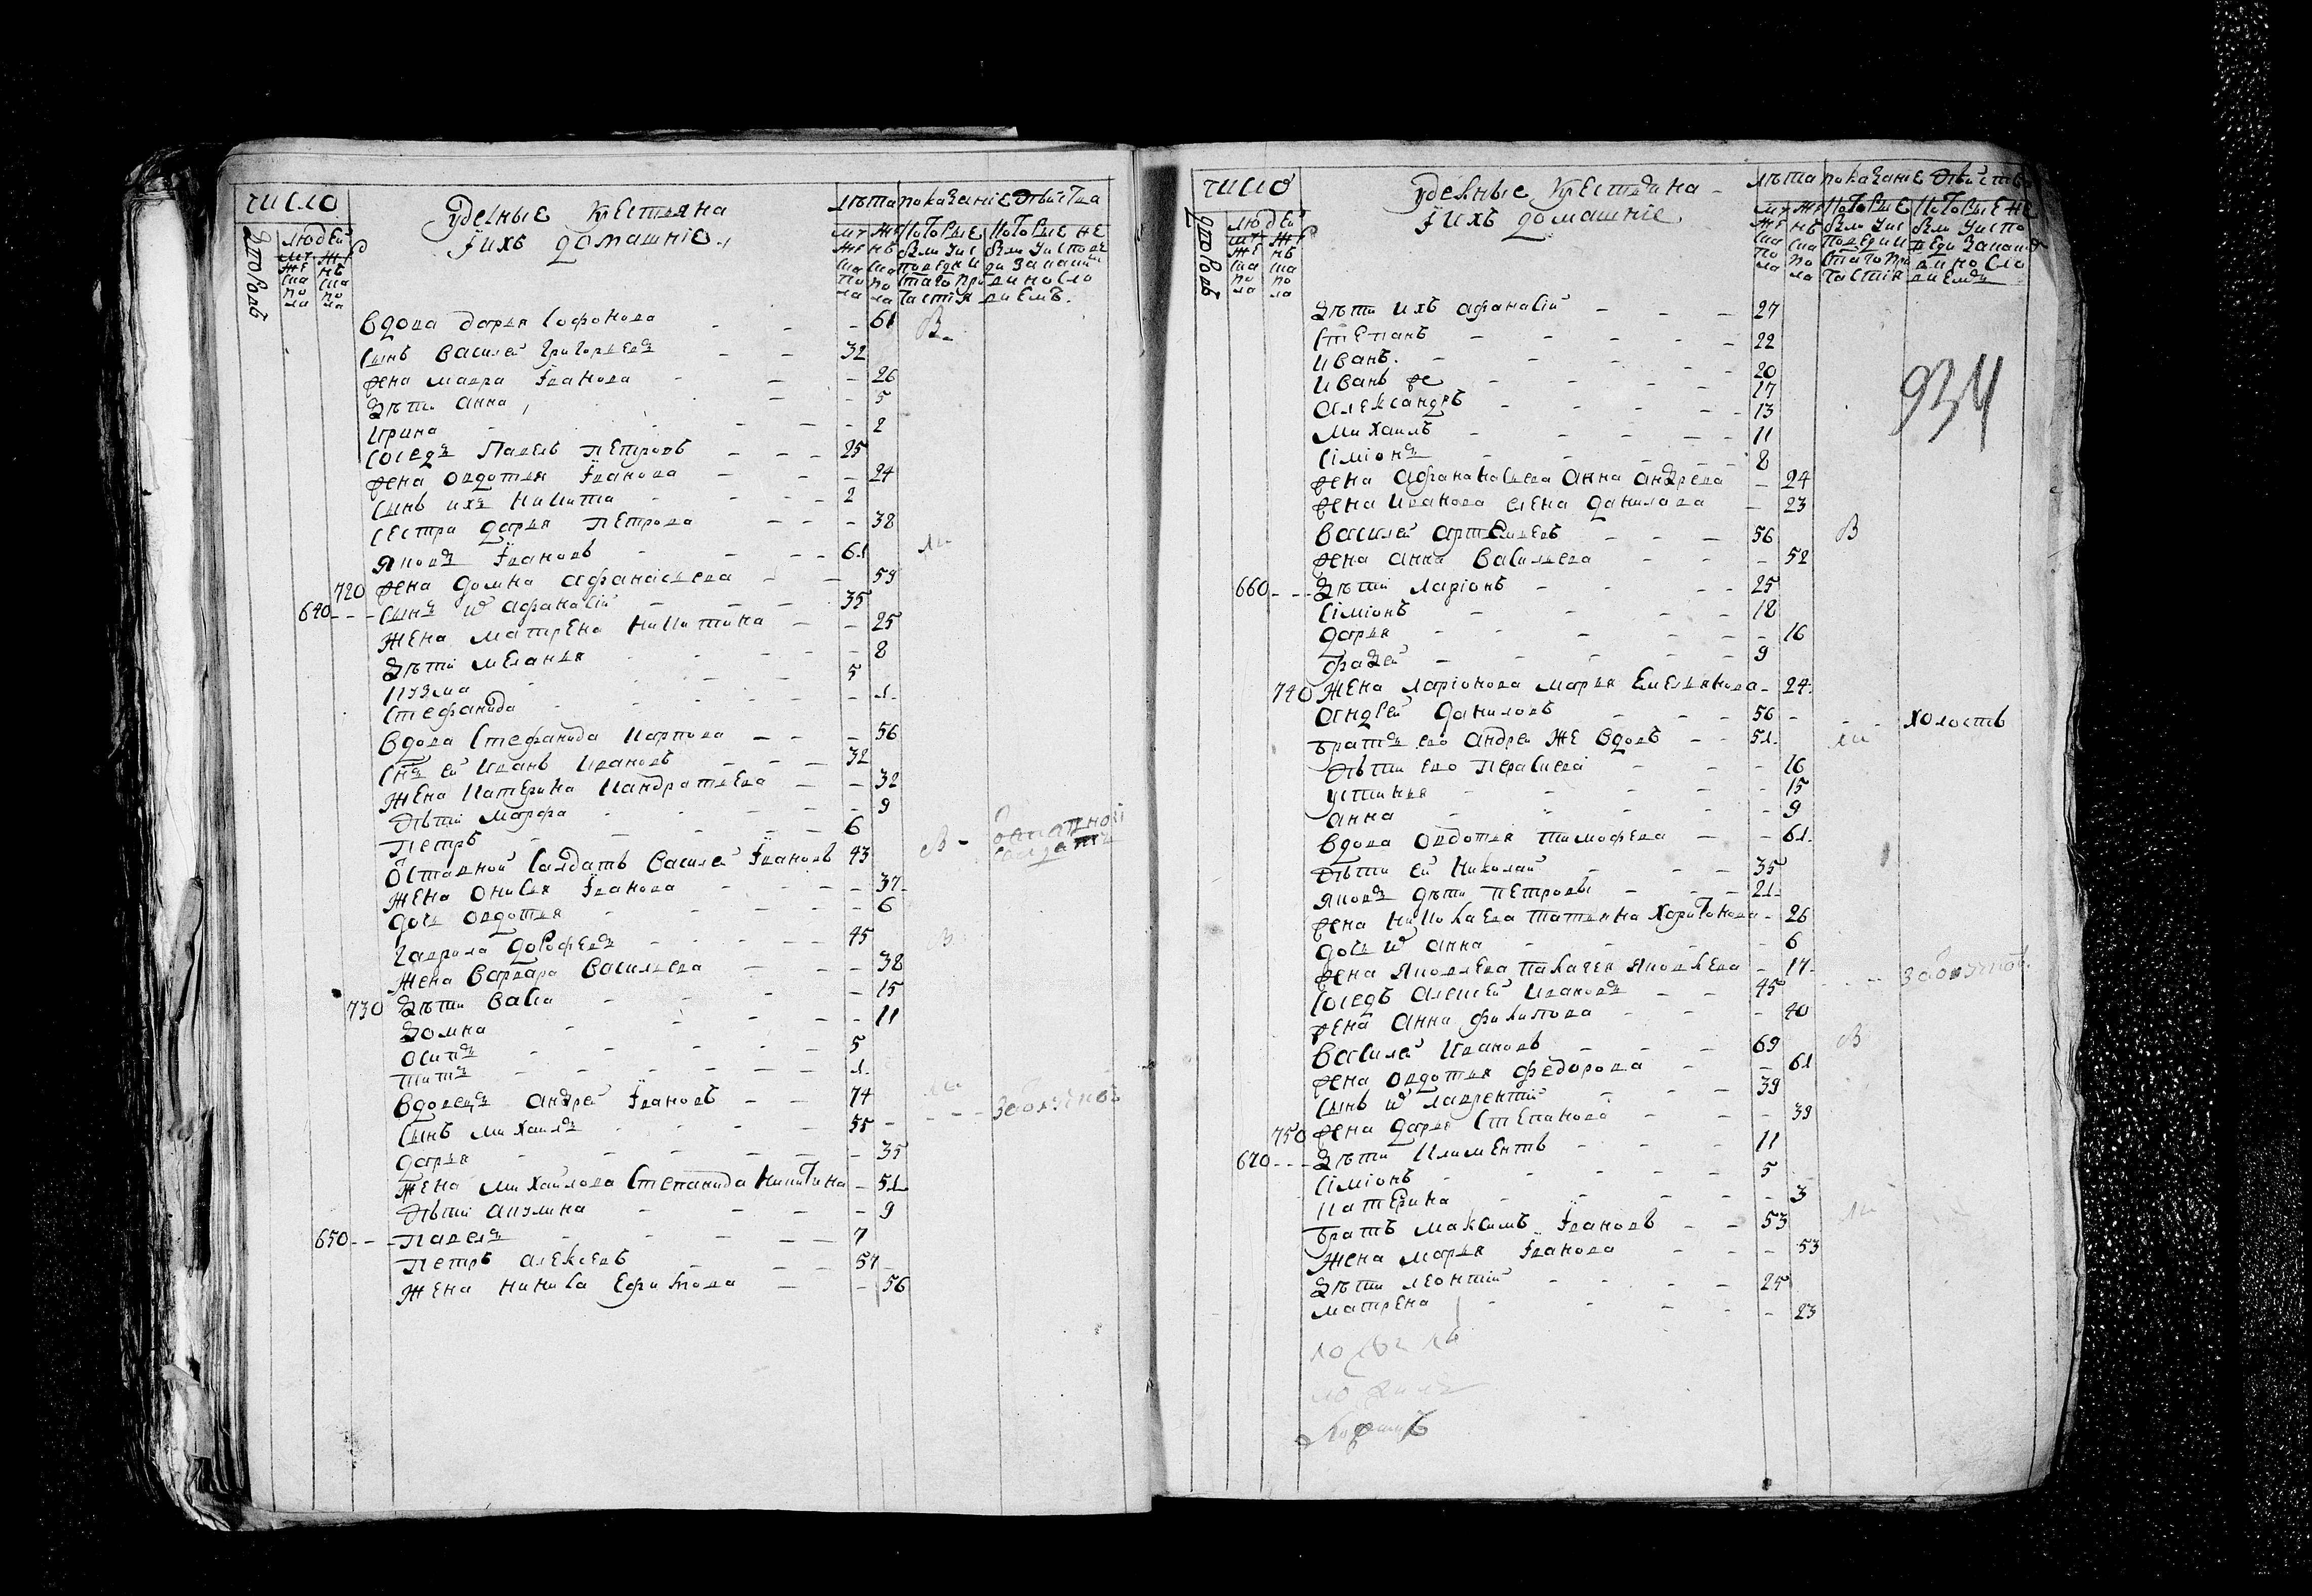 число
уделные крестьяна
їихъ домашніе
лѣта
показаніе действа
людей
дворовъ
мужеска пола
женска пола
вдова дарья Софонова - - - 61 В
Сынъ Василей Григорьевъ - - 32
жена мавра їванова - - - 26
дѣти анна - - 5
ирина - - - - 2
Соседъ Павелъ Петровъ - - - 25
жена овдотья їванова - - - 24
Сынъ ихъ никита - - - 2
Сестра дарья Петрова - - - 38
Яковъ ївановъ - - - 61
720 жена домна афанасьева - - 59
640 - - - Сынъ ѿ афанасій - - - 35
Жена матрена никитина - - 25
дѣти меланья - - - - 8
кузма - - - - 5
Стефанида - - - - - 1
вдова Стефанида карпова - - - 56
Снъ ей иванъ ивановъ - - - 32
Жена катерина кандратьева - - 32
Дѣти марфа - - - - 9
Петръ - - - - - 6
Оставной Салдатъ Василей ївановъ 43 В - отставной Салдатъ
Жена онисья їванова - - - - 37
дочь овдотья - - - - - 6
Гаврила дорофеевъ - - - - 45 В
Жена варвара васильева - - - 38
730 дѣти васа - - - - 15
домна - - - - - 11
осипъ - - - - - 5
титъ - - - - - 1
вдовецъ андрей ївановъ - - 74
Сынъ михаилъ - - - - 55 - - - -
дарья - - - - - 35
Жена михайлова Степанида никитина - 51
Дѣти акулина - - - - 9
650 - - - Павелъ - - - - 7
Петръ алексеевъ - - - 57
Жена - - 56
число
удельные крестьяна
їихъ домашніе
лѣта
показаніе действа
людей
дворовъ
934
дѣти ихъ афанасій - - - 27
Степанъ - - - - - 22
иванъ - - - - 20
иванъ же - - - - 17
александръ - - - - 13
михаилъ - - - - - 11
Сіміонъ - - - - - 8
жена афанасьева анна андреева - 24
жена иванова елена данилова - 23
василей артемьевъ - - - 56 В
жена анна васильева - - - 52
660 - - - дѣти ларіонъ - - - - 25
Сіміонъ - - - - 18
дарья - - - - - 16
фадей - - - - - 9
740 Жена ларіонова марья емельянова - 24
андрей даниловъ - - - 56 - - - холостъ
братъ ево андрей же вдовъ - - 51
дѣти ево - - - 16
устинья - - - - - 15
анна - - - - - 9
вдова овдотья тимофеева - - 61
дѣти ей николай - - - 35
яковъ дѣти Петровы - - - 21
жена николаева татьяна харитонова - 26
дочь ѿ анна - - - - 6
жена яковлева яковлева - 17
Соседъ алексей ивановъ - - 45 - - -
жена анна филипова - - - 40
василей ивановъ - - - 69 В
жена овдотья федорова - - - 61
Сынъ ѿ лаврентій - - - - 39
750 жена дарья Степанова - - - 39
670 - - - дѣти климентъ - - - 11
Сіміонъ - - - - - 5
катерина - - - - - 3
братъ максимъ ївановъ - - 53
Жена марья їванова - - - 53
дѣти леонтий - - - - 25
матрена - - - - 23